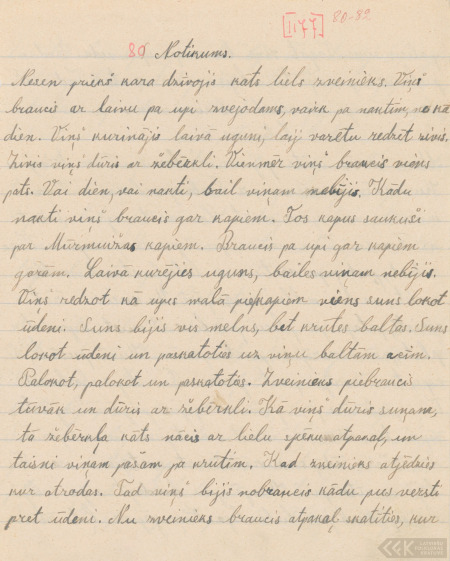 [1177] 80-82
80 Notikums.
Nesen priekš kara dzivojis kāts liels zveinieks. Viņš
braucis ar laivu pa upi zvejodams, vairk pa naktim, no kā
dien. Viņš kurinājis laivā uguni, laij varētu redzēt zivis.
Zivis viņš dūris ar žebērkli. Vienmēr viņš braucis viens
pats. Vai dien, vai nakti, bail viņam nebijis. Kādu
nakti viņš braucis gar kapiem. Tos kapus saukuši
par Mūrmuižas kapiem. Braucis pa upi gar kapiem
garām. Laivā kurējies uguns, bailes viņam nebijis.
Viņš redzot kā upes malā pie kapiem viens suns lokot
ūdeni. Suns bijis vis melns, bet krutes baltas. Suns
lokot ūdeni un paskatoties uz viņu baltām acīm.
Palokot, palokot un paskatotās. Zveinieks piebraucis
tuvāk un dūris ar žebērkli. Kā viņš dūris suņam,
tā žebērkļa kāts nācis ar lielu spēku atpakaļ, un
taisni viņam pašam pa krutim. Kad zveinieks atjēdzies
kur atrodas. Tad viņš bijis nobraucis kādu pus versti
pret ūdeni. Nu zveinieks braucis atpakaļ skatities, kur